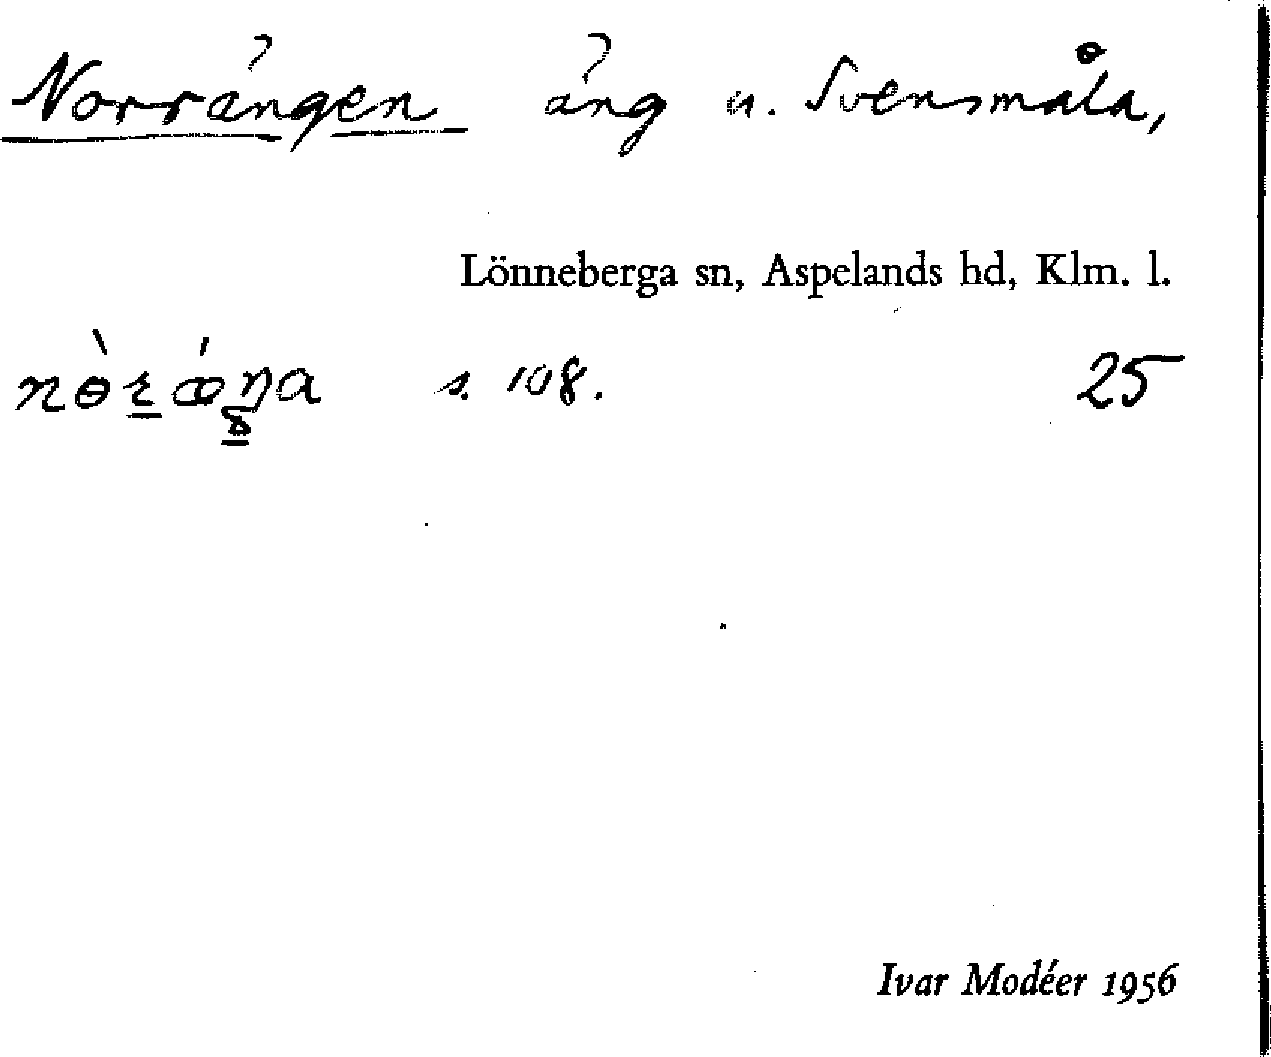 Norrängen äng u. Svensmåla,
Lönneberga sn, Aspelands hd, Klm. l.
s. 108. 25
Ivar Modéer 1956